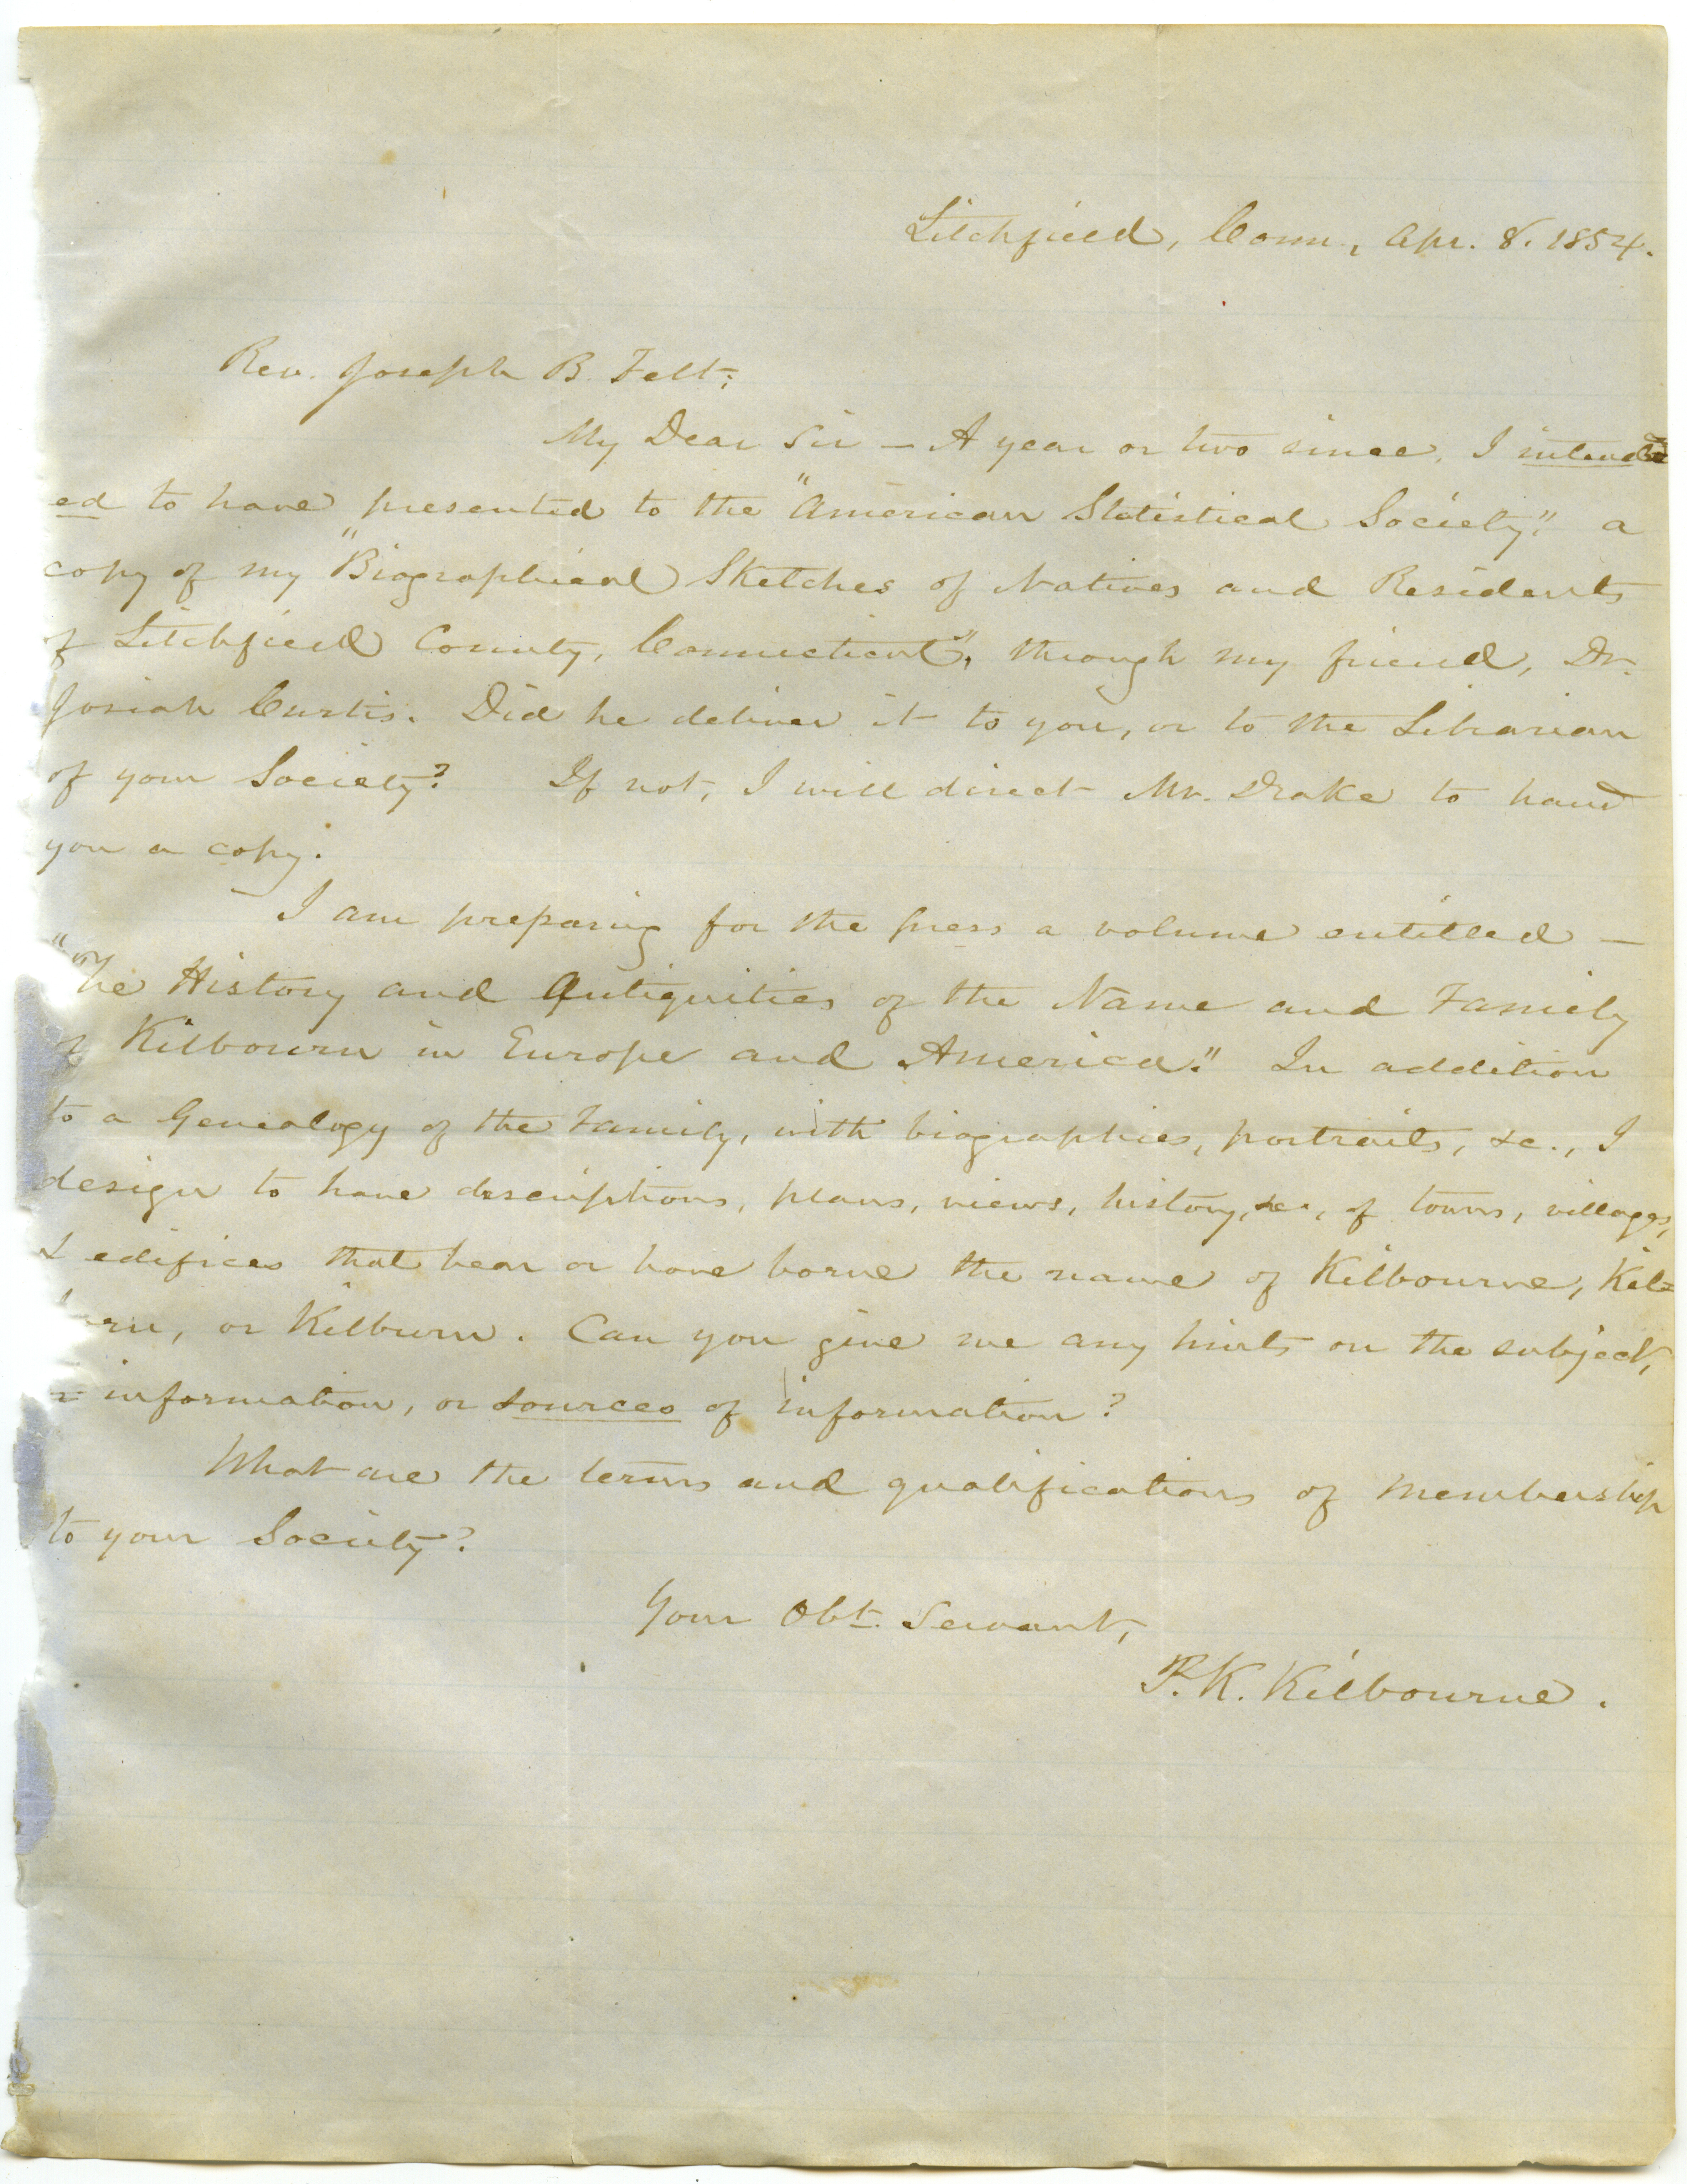 Litchfield, Conn., Apr. 8. 1854.
Rev. Joseph B. Felt;
My Dear Sir — A year or two since, I intend
ed to have presented to the "American Statistical Society," a
copy of my "Biographical Sketches of Natives and Residents
of Litchfield County, Connecticut", through my friend, Dr.
Josiah Curtis. Did he deliver it to you, or to the Librarian
of your Society? If not, I will direct Mr. Drake to hand
you a copy.
I am preparing for the press a volume entitled —
"The History and Antiquities of the Name and Family
of Kilbourn in Europe and America." In addition
to a Genealogy of the Family, with biographies, portraits, &c., I
design to have descriptions, plans, views, history, &c., of towns, villages,
& edifices that bear or have borne the name of Kilbourne, Kil=
orn, or Kilburn. Can you give me any hints on the subject,
information, or sources of information?
What are the terms and qualifications of membership
to your Society?
Your Obt. Servant,
P. K. Kilbourne.